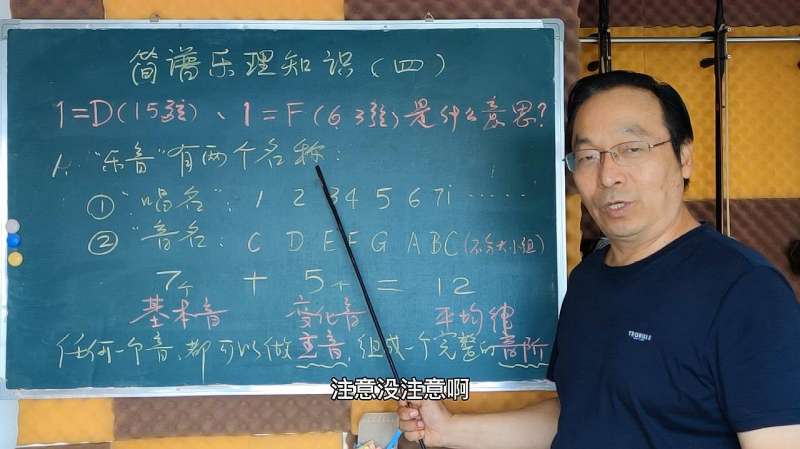 简谱乐理知识(四)
1=D(15弦)、1=F(63弦)是什么意思?
1、"乐音"有两个名称:
①"唱名": 1 2 3 4 5 6 7 i ……
②"音名: C D E F G A B C (不分大小组)
7个 + 5个 = 12
基本音 变化音 平均律
任何一个音、都可以做主音、组成一个完整的音阶
注意没注意啊